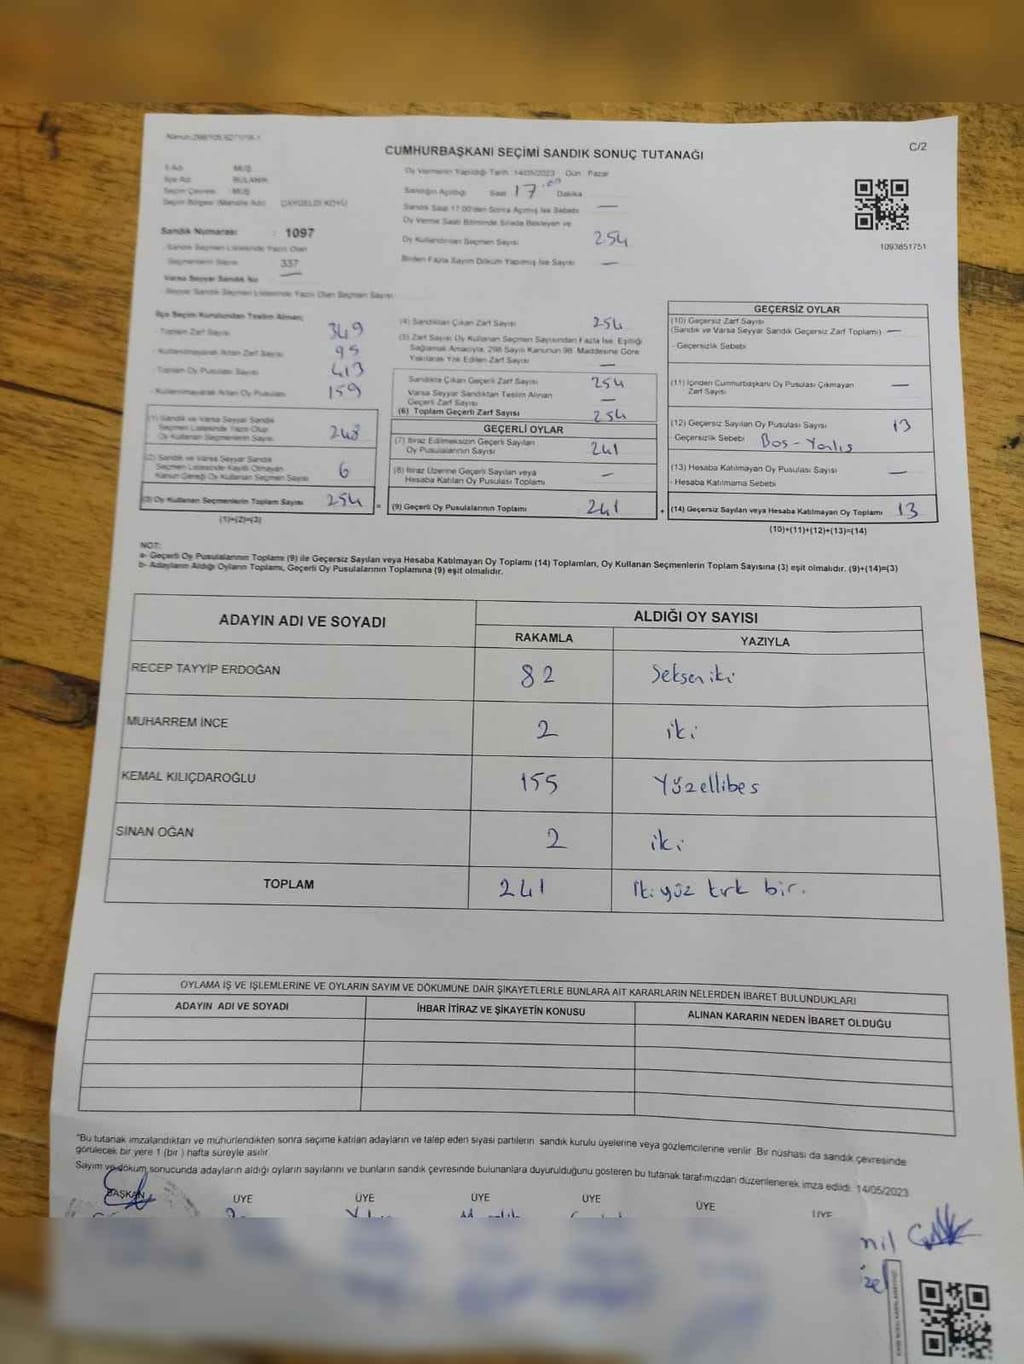 C/2
CUMHURBAŞKANI SEÇİMİ SANDIK SONUÇ TUTANAĞI
İl Adı : MUŞ
İlçe Adı : BULANIK
Seçim Çevresi : MUŞ
Seçim Bölgesi (Mahalle Adı)
Sandık Numarası : 1097
Sandık Seçmen Listesinde Yazılı Olan
Seçmenlerin Sayısı 337
Varsa Seyyar Sandık No —
Seyyar Sandık Seçmen Listesinde Yazılı Olan Seçmen Sayısı
Oy Vermenin Yapıldığı Tarih :14/05/2023 Gün : Pazar
Sandığın Açıldığı Saat 17:00 Dakika
Sandık Saat 17:00'den Sonra Açılmış İse Sebebi —
Oy Verme Saati Bitiminde Sırada Bekleyen ve
Oy Kullandırılan Seçmen Sayısı 254
Birden Fazla Sayım Döküm Yapılmış İse Sayısı —
1093851751
İlçe Seçim Kurulundan Teslim Alınan;
- Toplam Zarf Sayısı 349
- Kullanılmayarak Artan Zarf Sayısı 95
- Toplam Oy Pusulası Sayısı 413
- Kullanılmayarak Artan Oy Pusulası 159
(1) Sandık ve Varsa Seyyar Sandık
Seçmen Listesinde Yazılı Olup
Oy Kullanan Seçmenlerin Sayısı 248
(2) Sandık ve Varsa Seyyar Sandık
Seçmen Listesinde Kayıtlı Olmayan
Kanun Gereği Oy Kullanan Seçmen Sayısı 6
(3) Oy Kullanan Seçmenlerin Toplam Sayısı 254
(1)+(2)=(3)
(4) Sandıktan Çıkan Zarf Sayısı 254
(5) Zarf Sayısı Oy Kullanan Seçmen Sayısından Fazla İse, Eşitliği
Sağlamak Amacıyla, 298 Sayılı Kanunun 98. Maddesine Göre
Yakılarak Yok Edilen Zarf Sayısı —
Sandıkta Çıkan Geçerli Zarf Sayısı 254
Varsa Seyyar Sandıktan Teslim Alınan
Geçerli Zarf Sayısı —
(6) Toplam Geçerli Zarf Sayısı 254
GEÇERLİ OYLAR
(7) İtiraz Edilmeksizin Geçerli Sayılan
Oy Pusulalarının Sayısı 241
(8) İtiraz Üzerine Geçerli Sayılan veya
Hesaba Katılan Oy Pusulası Toplamı —
= (9) Geçerli Oy Pusulalarının Toplamı 241
GEÇERSİZ OYLAR
(10) Geçersiz Zarf Sayısı
(Sandık ve Varsa Seyyar Sandık Geçersiz Zarf Toplamı) —
- Geçersizlik Sebebi
(11) İçinden Cumhurbaşkanı Oy Pusulası Çıkmayan
Zarf Sayısı —
(12) Geçersiz Sayılan Oy Pusulası Sayısı 13
Geçersizlik Sebebi Boş - Yanlış
(13) Hesaba Katılmayan Oy Pusulası Sayısı —
- Hesaba Katılmama Sebebi
+ (14) Geçersiz Sayılan veya Hesaba Katılmayan Oy Toplamı 13
(10)+(11)+(12)+(13)=(14)
NOT:
a- Geçerli Oy Pusulalarının Toplamı (9) ile Geçersiz Sayılan veya Hesaba Katılmayan Oy Toplamı (14) Toplamları, Oy Kullanan Seçmenlerin Toplam Sayısına (3) eşit olmalıdır. (9)+(14)=(3)
b- Adayların Aldığı Oyların Toplamı, Geçerli Oy Pusulalarının Toplamına (9) eşit olmalıdır.
ADAYIN ADI VE SOYADI ALDIĞI OY SAYISI
RAKAMLA YAZIYLA
RECEP TAYYİP ERDOĞAN 82 Seksen iki
MUHARREM İNCE 2 iki
KEMAL KILIÇDAROĞLU 155 Yüzellibes
SİNAN OĞAN 2 iki
TOPLAM 241 İki yüz kırk bir.
OYLAMA İŞ VE İŞLEMLERİNE VE OYLARIN SAYIM VE DÖKÜMÜNE DAİR ŞİKAYETLERLE BUNLARA AİT KARARLARIN NELERDEN İBARET BULUNDUKLARI
ADAYIN ADI VE SOYADI İHBAR İTİRAZ VE ŞİKAYETİN KONUSU ALINAN KARARIN NEDEN İBARET OLDUĞU
"Bu tutanak imzalandıktan ve mühürlendikten sonra seçime katılan adayların ve talep eden siyasi partilerin sandık kurulu üyelerine veya gözlemcilerine verilir. Bir nüshası da sandık çevresinde
görülecek bir yere 1 (bir) hafta süreyle asılır.
Sayım ve döküm sonucunda adayların aldığı oyların sayılarını ve bunların sandık çevresinde bulunanlara duyurulduğunu gösteren bu tutanak tarafımızdan düzenlenerek imza edildi. 14/05/2023
BAŞKAN ÜYE ÜYE ÜYE ÜYE ÜYE ÜYE